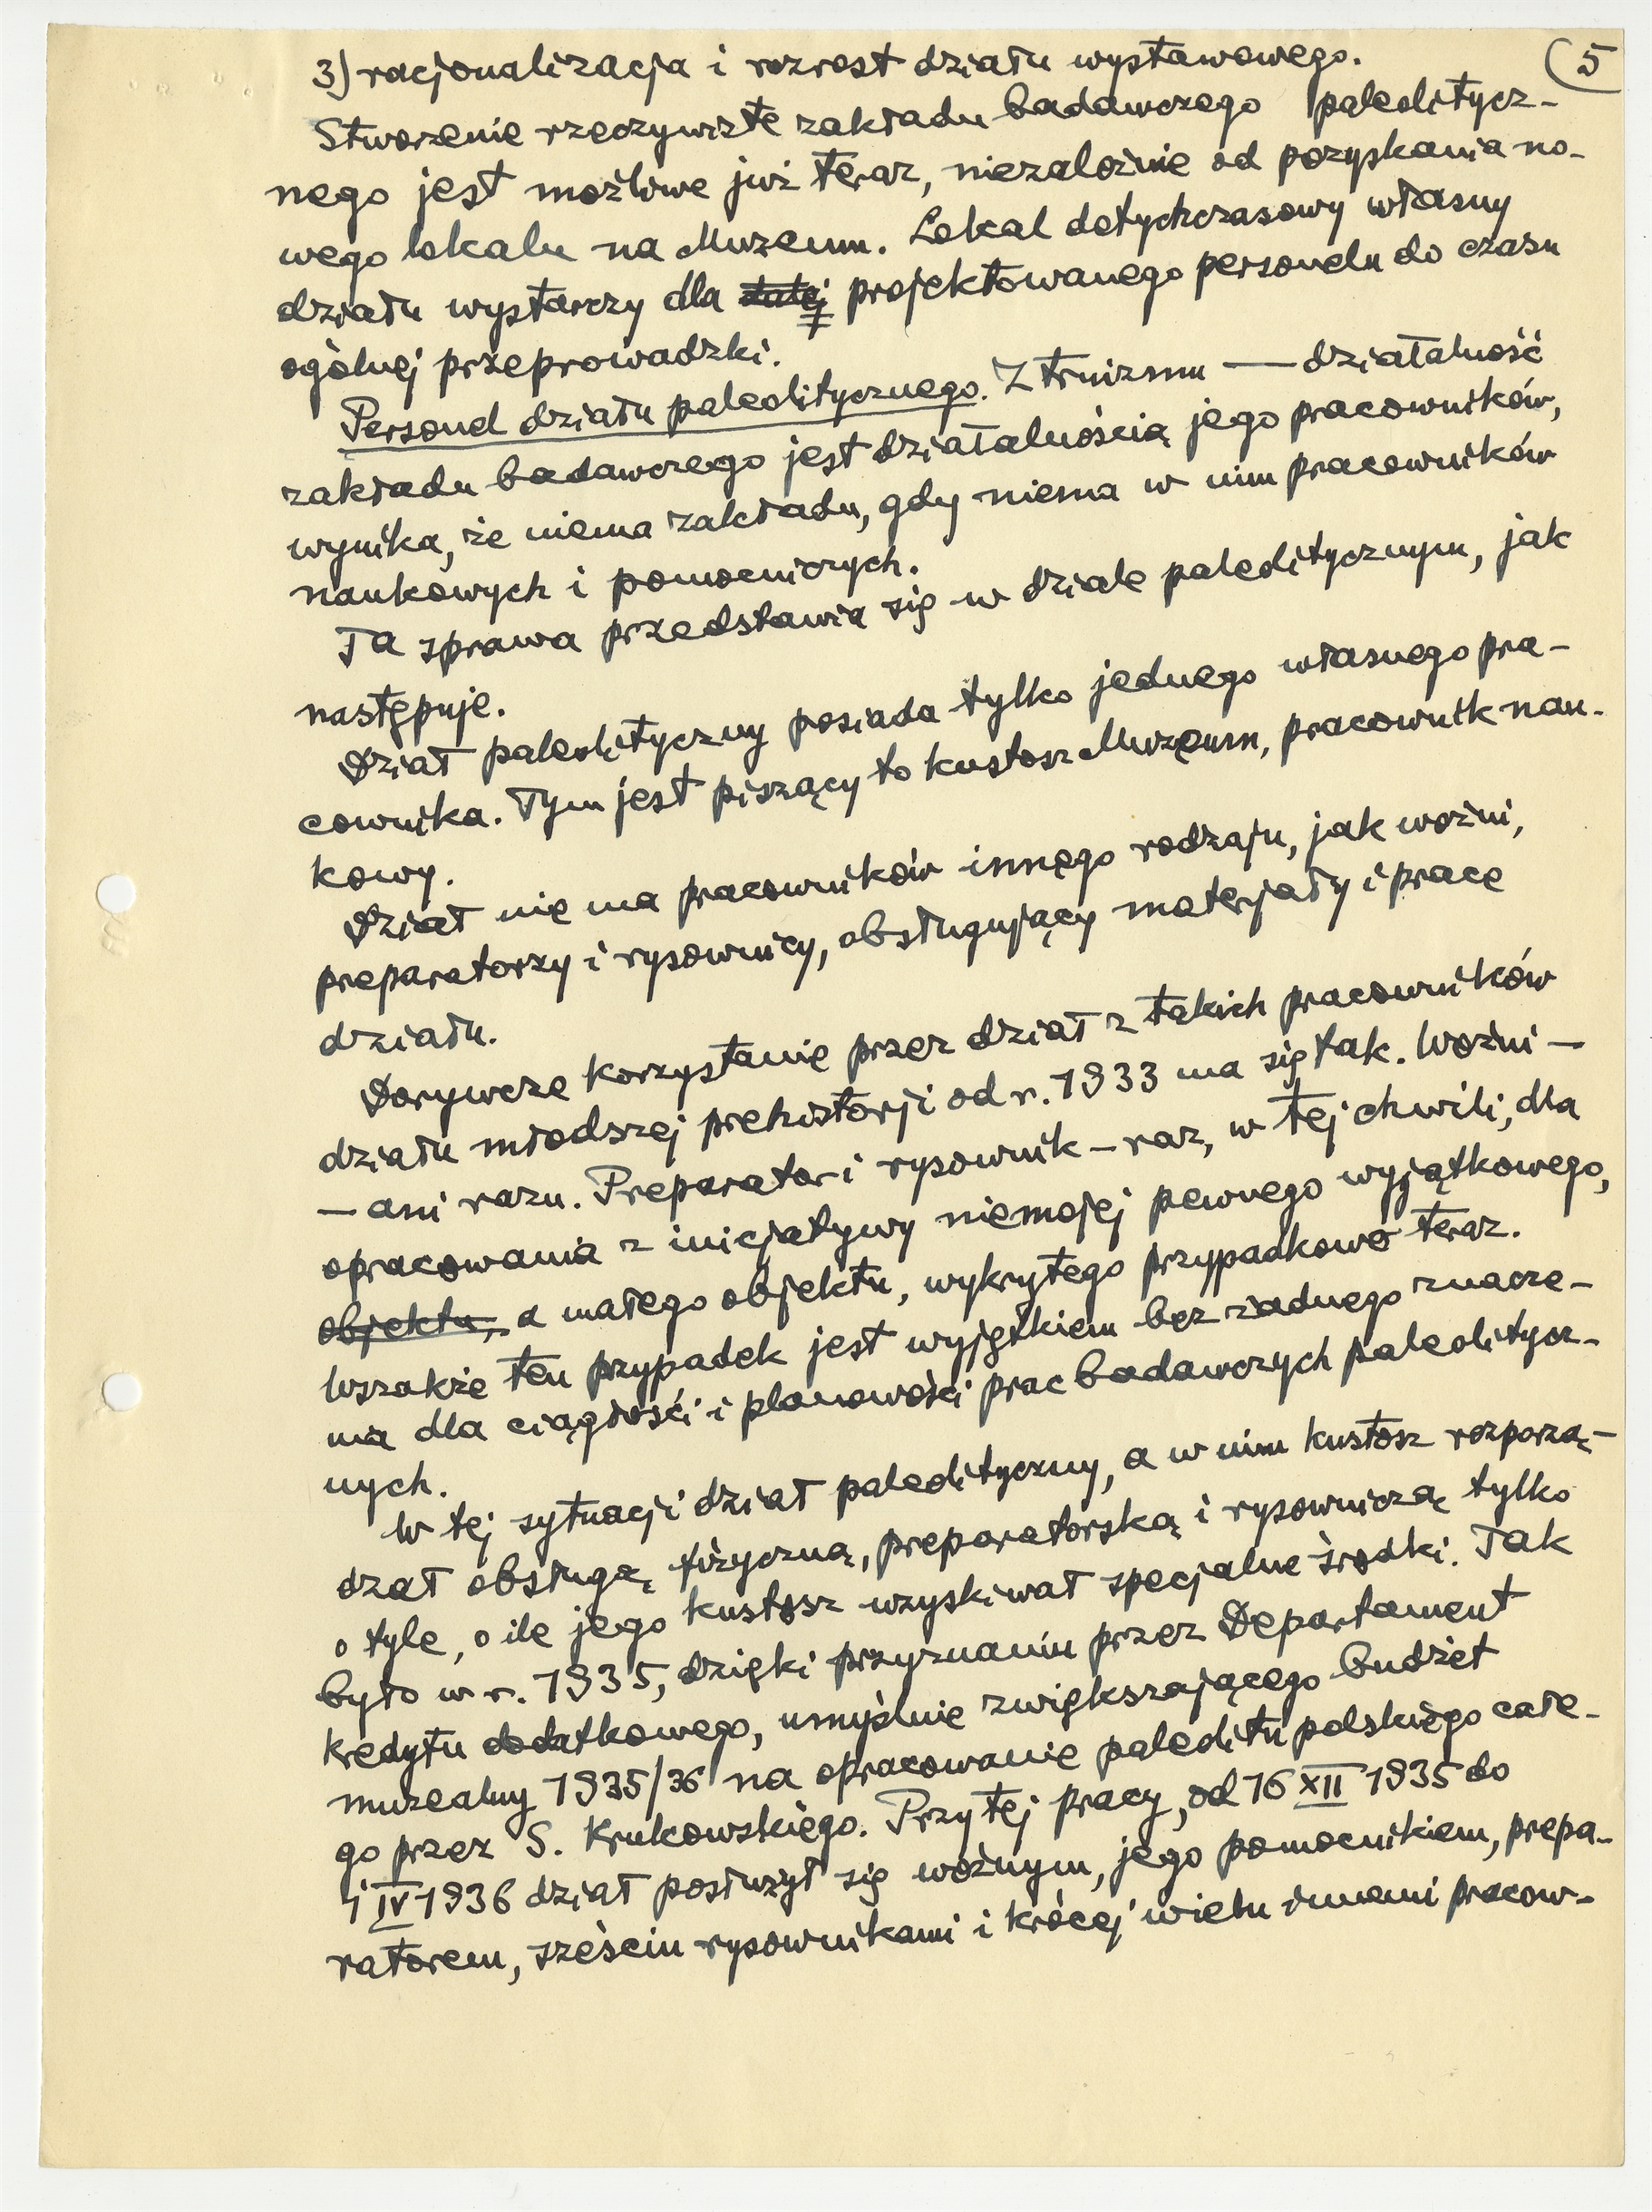 (5
3) racjonalizacja i rozrost działu wystawowego.
Stworzenie rzeczywiste zakładu badawczego paleolitycz-
nego jest możliwe już teraz, niezależnie od pozyskania no-
wego lokalu na Muzeum. Lokal dotychczasowy własny
działu wystarczy dla projektowanego personelu do czasu
ogólnej przeprowadzki.
Personel działu paleolitycznego. Z truizmu — działalność
zakładu badawczego jest działalnością jego pracowników,
wynika, że niema zakładu, gdy niema w nim pracowników
naukowych i pomocniczych.
Ta sprawa przedstawia się w dziale paleolitycznym, jak
następuje.
Dział paleolityczny posiada tylko jednego własnego pra-
cownika. Tym jest piszący to kustosz Muzeum, pracownik nau-
kowy.
Dział nie ma pracowników innego rodzaju, jak woźni,
preparatorzy i rysownicy, obsługujący materjały i prace
działu.
Dorywcze korzystanie przez dział z takich pracowników
działu młodszej prehistorji od r. 1933 ma się tak. Woźni —
— ani razu. Preparator i rysownik – raz, w tej chwili, dla
opracowania z inicjatywy niemojej pewnego wyjątkowego,
objektu, a małego objektu, wykrytego przypadkowo teraz.
Wszakże ten przypadek jest wyjątkiem bez żadnego znacze-
nia dla ciągłości i planowości prac badawczych paleolitycz-
nych.
W tej sytuacji dział paleolityczny, a w nim kustosz rozporzą-
dzał obsługą fizyczną, preparatorską i rysowniczą tylko
o tyle, o ile jego kustosz uzyskiwał specjalne środki. Tak
było w r. 1935, dzięki przyznaniu przez Departament
kredytu dodatkowego, umyślnie zwiększającego budżet
muzealny 1935/36 na opracowanie paleolitu polskiego całe-
go przez S. Krukowskiego. Przy tej pracy, od 16 XII 1935 do
1 IV 1936 dział posłużył się woźnym, jego pomocnikiem, prepa-
ratorem, sześciu rysownikami i krócej wielu innemi pracow-